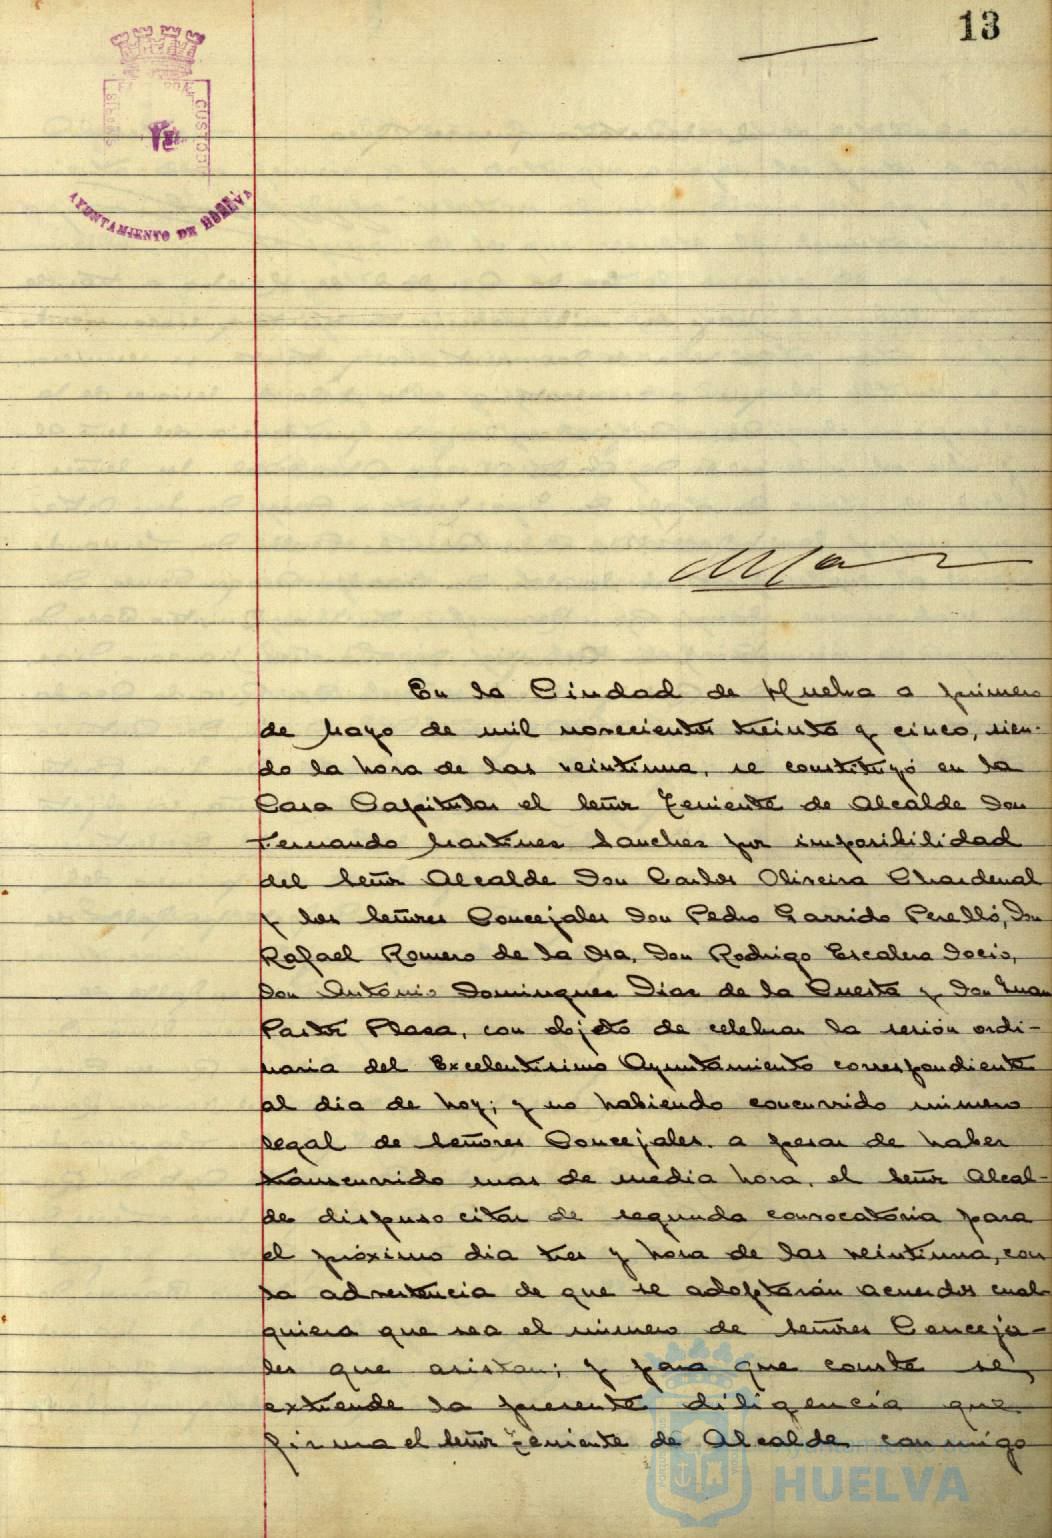 13
AYUNTAMIENTO DE HUELVA
En la Ciudad de Huelva a primero
de Mayo de mil novecientos treinta y cinco, sien-
do la hora de las veintiuna, se constituyó en la
Casa Capitular el Señor Teniente de Alcalde Don
Fernando Martinez Sanchez por imposibilidad
del Señor Alcalde Don Carlos Oliveira Chardenal
y los Señores Concejales Don Pedro Garrido Perelló, Don
Rafael Romero de la Osa, Don Rodrigo Escalera Socis,
Don Antonio Dominguez Diaz de la Cuesta y Don Juan
Pastor Plaza, con objeto de celebrar la sesión ordi-
naria del Excelentisimo Ayuntamiento correspondiente
al dia de hoy; y no habiendo concurrido número
legal de Señores Concejales, a pesar de haber
transcurrido mas de media hora, el Señor Alcal-
de dispuso citar de segunda convocatoria para
el próximo dia tres y hora de las veintiuna, con
la advertencia de que se adoptarán acuerdos cual-
quiera que sea el número de Señores Conceja-
les que asistan; y para que conste se
extiende la presente diligencia que
firma el Señor Teniente de Alcalde conmigo
HUELVA